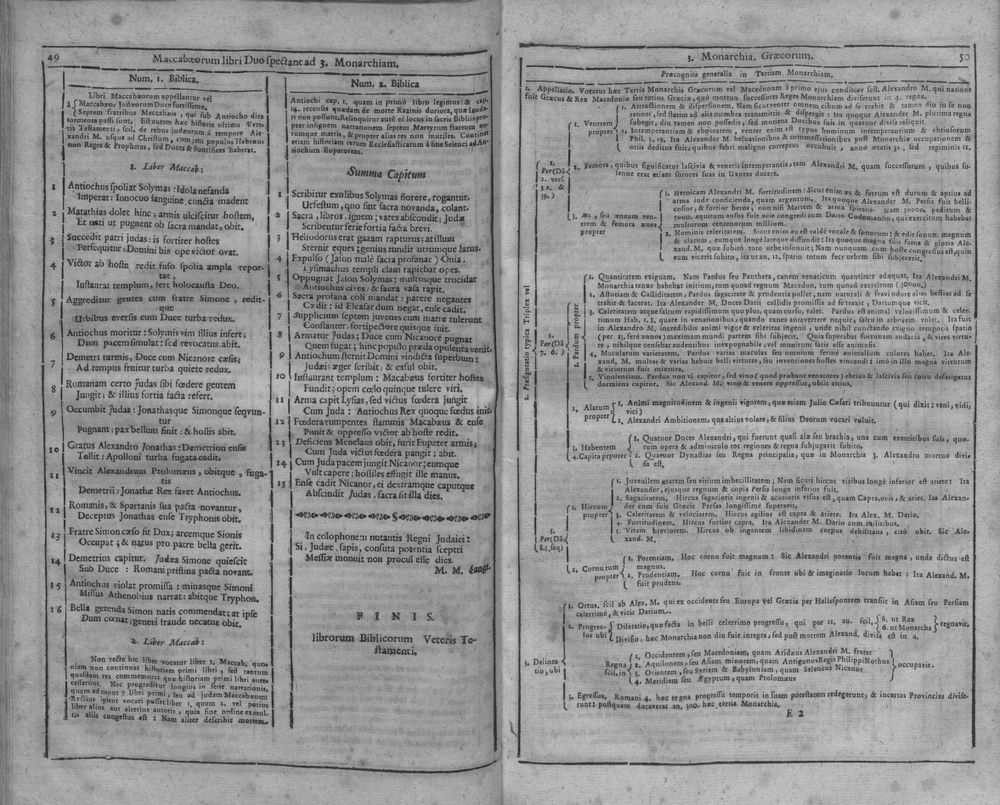 49
Maccabæorum libri Duo spectant ad 3. Monarchiam.
Num. 1. Biblica.
Libri Maccabæorum appellantur vel
à Maccabæo Judæorum Duce fortissimo,
Septem fratribus Maccabæis, qui sub Antiocho dira
tormenta passi sunt. Est autem hæc historia ultima Vete-
ris Testamenti, scil. de rebus judæorum à tempore Ale-
xandri M. usque ad Christum, cum jam populus Hebræus
non Reges & Prophetas, sed Duces & Pontifices haberet.
1. Liber Maccab:
1 Antiochus spoliat Solymas: Idola nefanda
Imperat: Innocuo sanguine cuncta madent
2 Matathias dolet hinc; armis ulciscitur hostem,
Et nati ut pugnent ob sacra mandat, obit.
3 Succedit patri judas: is fortiter hostes
Persequitur: Domini bis ope victor ovat.
4 Victor ab hoste redit fuso spolia ampla repor-
tat,
Instaurat templum, fert holocausta Deo.
5 Aggreditur gentes cum fratre Simone, redit-
que
Urbibus eversis cum Duce turba redux.
6 Antiochus moritur: Solymis vim filius infert;
Dum pacem simulat: sed revocatus abit.
7 Demetri turmis, Duce cum Nicanore cæsis;
Ad tempus fruitur turba quiete redux.
8 Romanam certo judas sibi fœdere gentem
Jungit; & illius fortia facta refert.
9 Occumbit judas: Jonathasque Simonque sequun-
tur
Pugnant: pax bellum finit: & hostis abit.
10 Gratus Alexandro Jonathas: Demetrion ensis
Tollit: Apolloni turba fugata cadit.
11 Vincit Alexandrum Ptolomæus, obitque, fuga-
tis
Demetrii: Jonathæ Rex favet Antiochus.
12 Romanis, & Spartanis sua pacta novantur,
Deceptus Jonathas ense Tryphonis obit.
13 Fratre Simon cæso fit Dux; arcemque Sionis
Occupat; & natus pro patre bella gerit.
14 Demetrius capitur. Judæa Simone quiescit
Sub Duce: Romani pristina pacta novant.
15 Antiochus violat promissa: minasque Simoni
Missus Athenobius narrat: abitque Tryphon.
16 Bella gerenda Simon natis commendat: at ipse
Dum cœnat; generi fraude necatus obit.
2. Liber Maccab:
Non recte hic liber vocatur liber 2. Maccab. quo-
niam non continuat historiam primi libri, sed tantum
quasdam res commemorat quæ historiam primi libri ante-
cesserunt. Nec progreditur longius in serie narrationis,
quam ad caput 7. libri primi, seu ad judam Maccabæum:
Rectius igitur vocari posset liber 1. quam 2. vel potius
liber alius aut alterius autoris, quia sine ordine ex mul-
tis aliis congestus est: Nam aliter describit mortem
Num. 2. Biblica
Antiochi cap. 1, quam in primo libro legimus: & cap.
14. recenset quædam de morte Razinis duriora, quæ lauda-
ri non possunt. Relinquitur autē ei locus in sacris Bibliis pro-
pter insignem narrationem septem Martyrum fratrum eo-
rumque matris, & propter alias res non inutiles. Continet
etiam historiam rerum Ecclesiasticarum à fine Seleuci ad An-
tiochum Eupatorem.
Summa Capitum
1 Scribitur exolibus Solymas florere, rogantur.
Ut festum, quo sint sacra novanda, colant.
2 Sacra, libros, ignem; vates abscondit; Judæ
Scribentur serie fortia facta brevi.
3 Heliodorus erat gazam rapturus: at illum
Sternit eques; genius tundit utrumque latus.
4 Expulso (Jason male sacra profanat) Onia,
Lysimachus templi claus rapiebat opes.
5 Oppugnat Jason Solymas; multosque trucidat
Antiochus cives: & sacra vasa rapit.
6 Sacra profana coli mandat: parere negantes
Cædit: id Eleasar dum negat, ense cadit.
7 Supplicium septem juvenes cum matre tulerunt
Constanter. forti pectore quisque fuit.
8 Armatur Judas; Duce cum Nicanore pugnat
Quem fugat; hinc populo præda opulenta venit.
9 Antiochum sternit Domini vindicta superbum:
Judæis æger scribit, & exsul obit.
10 Instaurant templum: Macabæus fortiter hostes
Fundit; opem cœlo quinque tulere viri.
11 Arma capit Lysias, sed victus fœdera jungit
Cum Juda: Antiochus Rex quoque fœdus init.
12 Fœdera rumpentes flammis Macabæus & ense
Punit & oppresso victor ab hoste redit.
13 Desciens Menelaus obit, furit Eupater armis;
Cum Juda victus fœdera pangit; abit.
14 Cum Juda pacem jungit Nicanor; eumque
Vult capere: hostiles effugit ille manus.
15 Ense cadit Nicanor, ei dextramque caputque
Abscindit Judas, sacra sit illa dies.
In colophonem nutantis Regni Judaici:
Si, Judæe, sapis, consulta potentia sceptri
Messiæ monuit non procul esse dies.
M. M. Langi.
F I N I S.
librorum Biblicorum Veteris Te-
stamenti.
3. Monarchia Græcorum.
50
Præcognita generalia in Tertiam Monarchiam.
1. Appellatio. Vocatur hæc Tertia Monarchia Græcorum vel Macedonum à primo ejus conditore scil. Alexandro M. qui natione
fuit Græcus & Rex Macedoniæ seu totius Græciæ, quo mortuo, successores Regna Monarchiam diviserunt in 4. regna.
2. Præfiguratio typica Triplex vel
1. Per (Da
2. vers.
32. &
39.)
1. Ventrem
propter
1. Attractionem & dispersionem. Nam sicut venter omnem cibum ad se trahit & tamen diu in se non
retinet, sed statim ad alia membra transmittit & dispergit: Ita quoque Alexander M. plurima regna
subegit, diu tamen non possedit, sed moriens Ducibus suis in quatuor divisa reliquit.
2. Intemperantiam & ebrietatem, venter enim est typus hominum intemperantium & ebriosorum
Phil. 3, 19. Ita Alexander M. helluationibus & commessationibus post Monarchiæ occupationem &
otiis deditus fuit; quibus febri maligno correptus occubuit, anno ætatis 32, sed regiminis 12,
2. Femora, quibus significatur lascivia & veneris intemperantia, tam Alexandri M. quam successorum, quibus so-
lenne erat etiam sorores suas in Uxores ducere.
3. æs, seu æneum ven-
trem & femora ænea
propter
1. Heroicam Alexandri M. fortitudinem: Sicut enim æs & ferrum est durum & aptius ad
arma inde conficienda, quam argentum, Ita quoque Alexander M. Persis fuit belli-
cosior, & fortior heros, non nisi Martem & arma spirans. Nam 30000. peditum &
5000. equitum ausus fuit acie congredi cum Dario Codomanno, qui exercitum habebat
multorum centenorum millium.
2. Nominis celeritatem. Sicut enim æs est valdè vocale & sonorum: & edit sonum magnum
& clarum, eumque longè lateque diffundit: Ita quoque magna fuit fama & gloria Ale-
xand. M. quæ subitò toto orbe insonuit; Nam nunquam cum hoste congressus est, quin
eum vicerit subito, ita ut an. 12. spatio totum ferè orbem sibi subjecerit.
2. Per (Da
7. 6.)
1. Pardum propter
1. Quantitatem exiguam. Nam Pardus seu Panthera, canem venaticum quantitate adæquat. Ita Alexandri M.
Monarchia tenue habebat initium, tum quoad regnum Macedon, tum quoad exercitum (30000.)
2. Astutiam & Calliditatem, Pardus sagacitate & prudentia pollet, nam naturali & fraviodore alias bestias ad se
trahit & lacerat. Ita Alexander M. Duces Darii callidis promissis ad se traxit, Dariumque vicit.
3. Celeritatem atque saltum rapidissimum quo plus, quam cursu, valet. Pardus est animal velocissimum & celer-
rimum Hab. 1. 8. quare in venationibus, quando canes antevertere nequit, saltu in arborem volat. Ita fuit
in Alexandro M. incredibilis animi vigor & celeritas ingenii, unde nihil cunctando exiguo temporis spatio
(per 12. ferè annos) maximam mundi partem sibi subjecit. Quia superabat fortunam audacia, & vires virtu-
te, nihilque censebat audentibus inexpugnabile, vel omnium satis esse animosis.
4. Macularum varietatem. Pardus varias maculas seu omnium fermè animalium colores habet. Ita Ale-
xand. M. multas & varias habuit belli virtutes, seu invenciones hostes vincendi; imò in illo magna virtutum
& vitiorum fuit mixtura.
5. Vinolentiam. Pardus non vi capitur, sed vino (quod probant venatores) ebrius & lascivia seu coitu defatigatus
dormiens capitur. Sic Alexand. M. vino & venere oppressus, obiit citius.
2. Alatum
propter
1. Animi magnitudinem & ingenii vigorem, quæ etiam Julio Cæsari tribuuntur (qui dixit: veni, vidi,
vici)
2. Alexandri Ambitionem, qua altius volare, & filius Deorum vocari voluit.
3. Habentem
4. Capita propter
1. Quatuor Duces Alexandri, qui fuerunt quasi alæ seu brachia, una cum exercitibus suis, quo-
rum opera & adminiculo tot regiones & regna subjugavit subito.
2. Quatuor Dynastias seu Regna principalia, quæ in Monarchia 3. Alexandro mortuo divi-
sa est,
3.
Per (Da
8. 5. seq)
1. Hircum
propter
1. Juvenilem ætatem seu virium imbecillitatem; Nam sicuti hircus viribus longè inferior est ariete: Ita
Alexander, ejusque regnum & copia Persis longe inferior fuit.
2. Sagacitatem, Hircus sagacioris ingenii & acutioris visus est, quam Capra, ovis, & aries. Ita Alexan-
der cum suis Græcis Persas longissimè superavit.
3. Celeritatem & velocitatem, Hircus agilior est capra & ariete. Ita Alex. M. Dario.
4. Fortitudinem, Hircus fortior capra, Ita Alexander M. Dario cum militibus.
5. Vitam breviorem. Hircus ob ingentem libidinem corpus debilitans, citò obit. Sic Ale-
xand. M.
2. Cornutum
propter
1. Potentiam, Hoc cornu fuit magnum: Sic Alexandri potentia fuit magna, unde dictus est
magnus.
2. Prudentiam. Hoc cornu fuit in fronte ubi & imaginatio locum habat: Ita Alexand. M.
fuit prudens.
3. Delinea
tio, ubi
1. Ortus, scil ab Alex. M. qui ex occidente seu Europa vel Græcia per Hellespontem transiit in Asiam seu Persiam
celerrimè, & vicit Darium.
2. Progres-
sus ubi
Dilatatio, quæ facta in belli celerrimo progressu, qui per 12. an. scil, 6. ut Rex
6. ut Monarcha regnavit,
Divisio. hæc Monarchia non diu fuit integra, sed post mortem Alexand. divisa est in 4.
Regna
scil. in
1. Occidentem, seu Macedoniam, quam Aridæus Alexandri M. frater
2. Aquilonem, seu Asiam minorem, quam Antigonus Regis Philippi Nothus
3. Orientem, seu Syriam & Babyloniam, quam Seleucus Nicanor
4. Meridiem seu Ægyptum, quam Ptolomæus
occupavit.
3. Egressus, Romani 4. hæc regna progressu temporis in suam potestatem redegerunt; & incertas Provincias divise-
runt: postquam duraverat an. 300. hæc tertia Monarchia.
E 2